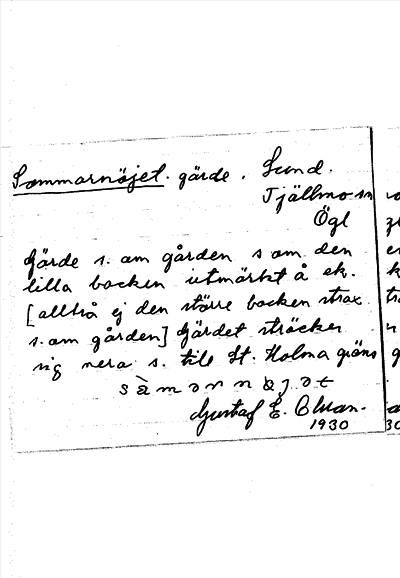 Sommarnöjet. gärde. Lund.
Tjällmo sn
Ögl
Gärde s. om gården s om den
lilla backen utmärkt å ek.
[alltså ej den större backen strax
s. om gården] Gärdet sträcker
sig nera s. till St. Holma gräns
Gustaf E.
1930